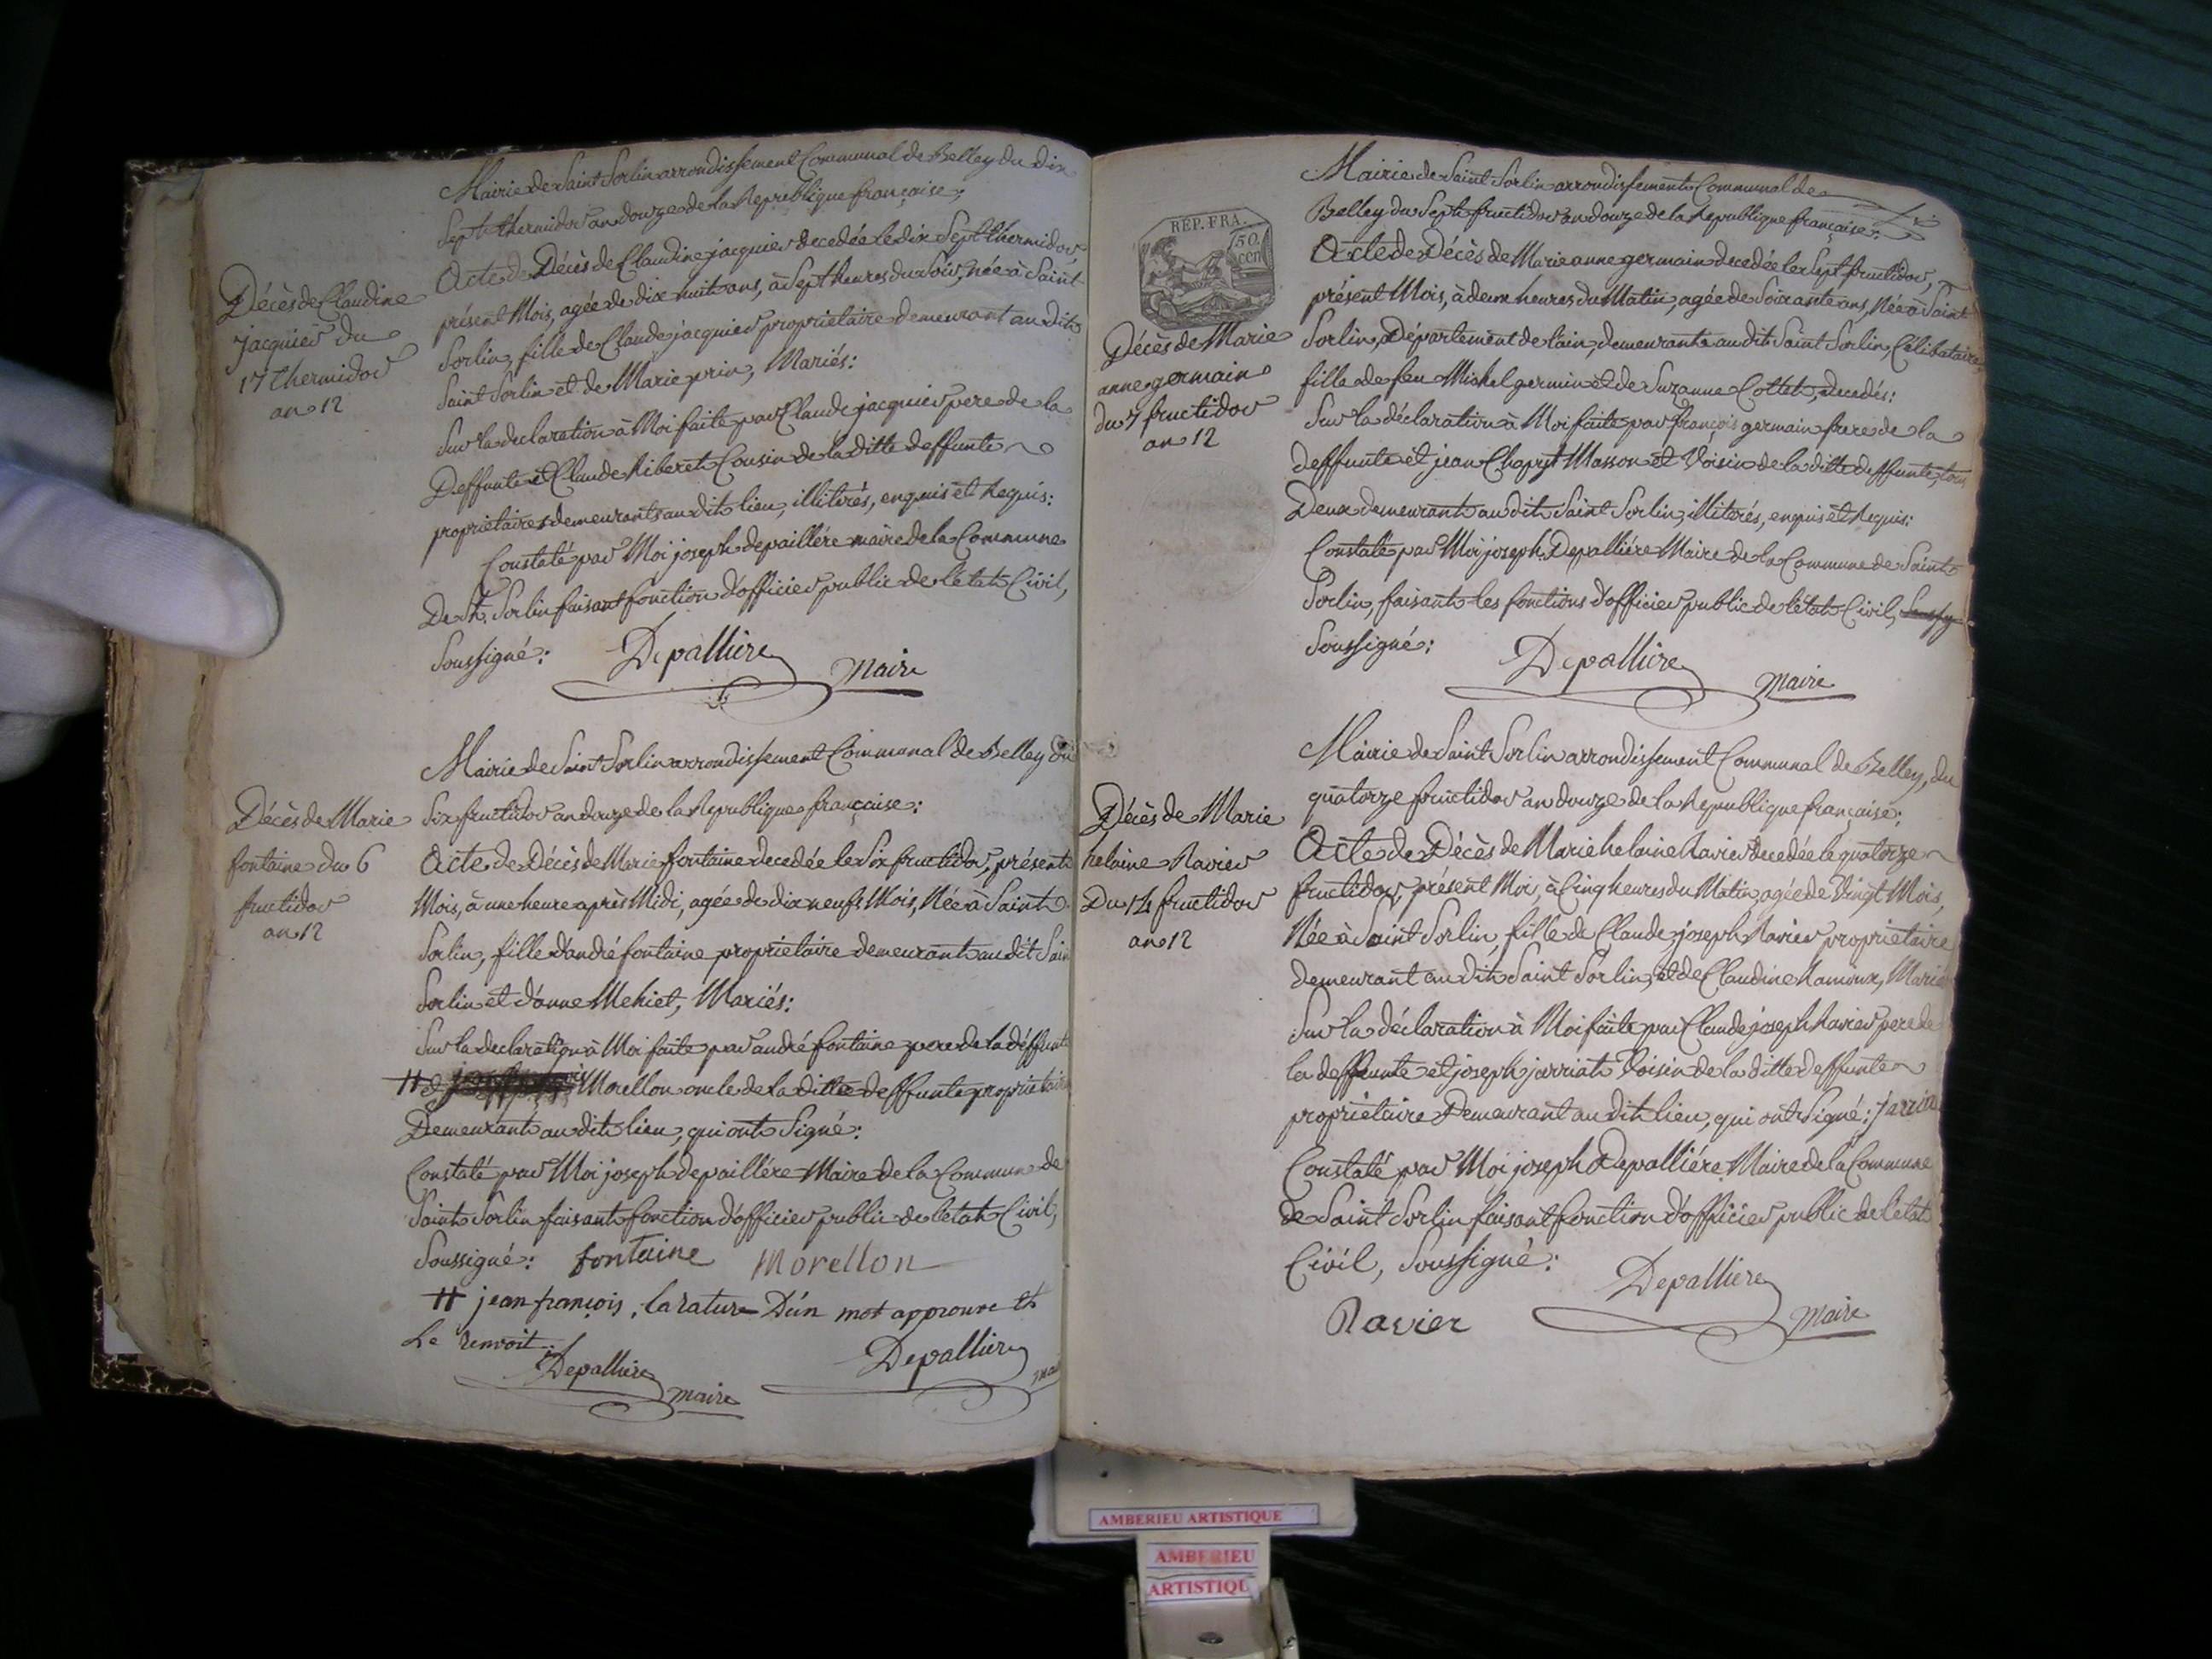 Mairie de Saint Sorlin arrondissement Communal de Belley du dix
Sept thermidor an douze de la Republique française;
Acte de Décès de Claudine jacquier decedée le dix Sept thermidor,
présent Mois, agée de dix huit ans, à Sept heures du Soir, née à Saint
Sorlin, fille de Claude jacquier proprietaire demeurant au dit
Saint Sorlin et de Marie prin, Mariés:
Sur la declaration à Moi faite par Claude jacquier pere de la
Deffunte et Claude Riberet Cousin de la ditte deffunte
proprietaires demeurants au dit lieu, illiterés, enquis et Requis:
Constaté par Moi joseph depaillére maire de la Commune
De St. Sorlin faisant fonction d'officier public de l'état Civil,
Soussigné: Depalliere maire
Décès de Claudine
jacquier du
17 thermidor
an 12
Mairie de Saint Sorlin arrondissement Communal de Belley du
Six fructidor an douze de la Republique française:
Acte de Décès de Marie fontaine decedée le Six fructidor, présent
Mois, à une heure après Midi, agée de dix neuf Mois, Née à Saint
Sorlin, fille d'andré fontaine proprietaire demeurant au dit Sain
Sorlin et d'anne Mehiet, Mariés:
Sur la declaration à Moi faite par andré fontaine pere de la déffunte
# et Morellon oncle de la ditte deffunte proprietaire
Demeurant au dit lieu, qui ont Signé:
Constaté par Moi joseph depaillére Maire de la Commune de
Saint Sorlin faisant fonction d'officier public de l'etat Civil,
Soussigné: fontaine Morellon
# jean françois, la rature D'un mot approuve et
Le renvoit. Depalliere maire Depalliere mai
Décès de Marie
fontaine du 6
fructidor
an 12
Mairie de Saint Sorlin arrondissement Communal de
Belley du Sept fructidor an douze de la Republique française:
Acte de Décès de Marie anne germain decedée le Sept fructidor,
présent Mois, à deux heures du Matin, agée de Soixante ans, Née à Saint
Sorlin, Département de l'ain, demeurante au dit Saint Sorlin, Célibataire
fille de feu Michel germin et de Suzanne Cottet, decedés:
Sur la déclaration à Moi faite par françois germain frere de la
deffunte et jean Chaput Masson et Voisin de la ditte deffunte, tous
Deux demeurant au dit Saint Sorlin, illiterés, enquis et Requis:
Constaté par Moi joseph Depalliére Maire de la Commune de Saint
Sorlin, faisant les fonctions d'officier public de l'état Civil,
Soussigné: Depalliere maire
REP. FRA.
50.
cen
Décès de Marie
anne germain
du 7 fructidor
an 12
Mairie de Saint Sorlin arrondissement Communal de Belley, du
quatorze fructidor an douze de la Republique française;
Acte de Décès de Marie helaine Ravier decedée le quatorze
fructidor, présent Mois, à Cinq heures du Matin, agée de Vingt Mois,
Née à Saint Sorlin, fille de Claude joseph Ravier proprietaire
demeurant au dit Saint Sorlin, et de Claudine Ramoux, Mariés
Sur la déclaration à Moi faite par Claude joseph Ravier pere de
la deffunte et joseph jarriat Voisin de la ditte deffunte
proprietaire Demeurant au dit lieu, qui ont Signé: Jarria
Constaté par Moi joseph Depalliére Maire de la Commune
de Saint Sorlin faisant fonction d'officier public de l'état
Civil, Soussigné: Depalliere maire
Ravier
Décès de Marie
helaine Ravier
Du 14 fructidor
an 12
AMBERIEU ARTISTIQUE
AMBERIEU
ARTISTIQU